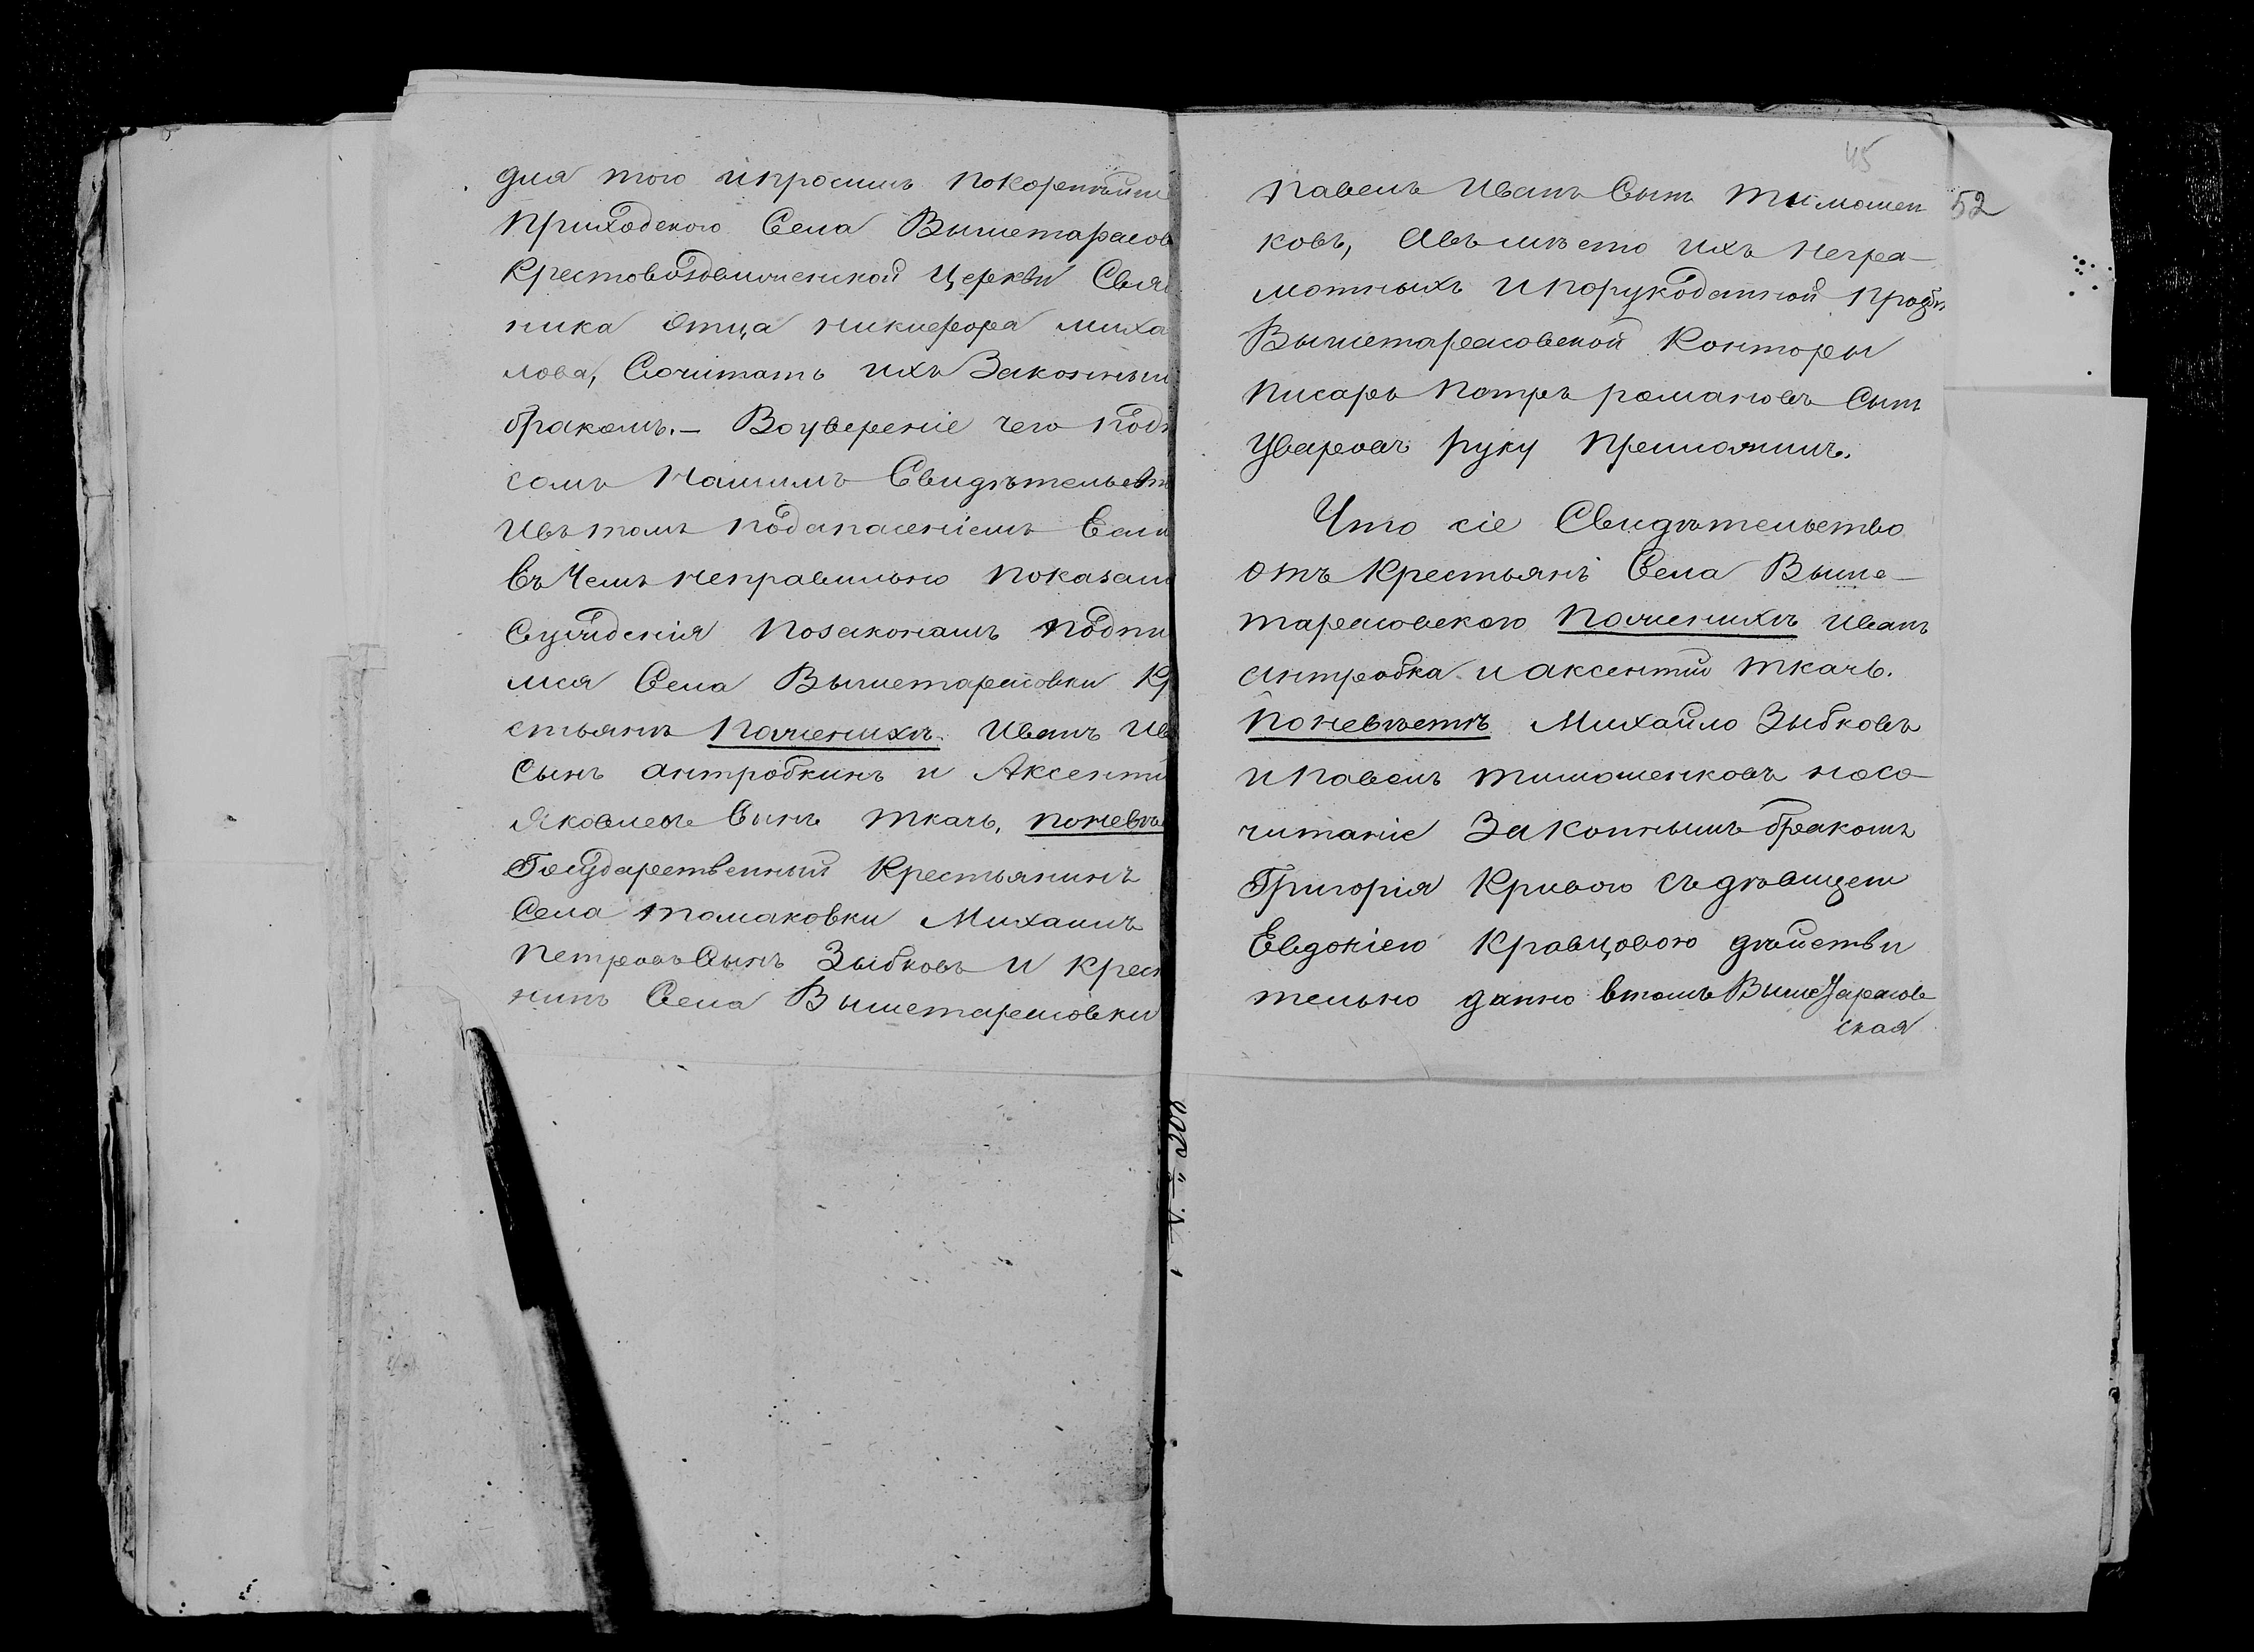 для того и просимъ покорнѣйше
Приходского Села Вышетарасов
Крестовоздвиженской Церкви Свя
ника Отца никифора миха
лова, Сочитать ихъ Законнымъ
бракомъ.— Воувереніе чего подп
самъ Нашимъ Свидѣтельств
Ивътомъ подопасеніемъ Если
въ Чемъ неправильно показали
Сужденія позаконамъ подпи
мся Села Вышетарасовки Кр
стьянъ Поженихъ. Иванъ Ив
Сынъ антробкинъ и Аксенти
Яковлевъ Сынъ Ткачь, поневѣ
Государственный Крестьянинъ
Села томаковки Михаилъ
Петровъ Сынъ Зыбковъ и крест
нинъ Села Вышетарасовки
45
52
павелъ Иванъ Сынъ Тимошен
ковъ, Авъмѣсто ихъ негра-
мотныхъ ипорукоданной прозбѣ
Вышетарасовской Конторы
писарь Петръ романовъ Сынъ
Уваровъ руку Приложилъ.
Что сіе Свидѣтельство
отъ Крестьянъ Села Выше-
тарасовского Поженихъ Иванъ
антробка и аксентий Ткачь.
Поневѣстѣ Михайло Зыбковъ
и павелъ тимошенковъ насо-
читаніе Законнымъ бракомъ
Григорія Кривого съ дѣвицею
Евдокіею Кравцовою дѣйстви
тельно данно втомъ ВышеТарасов-
ская